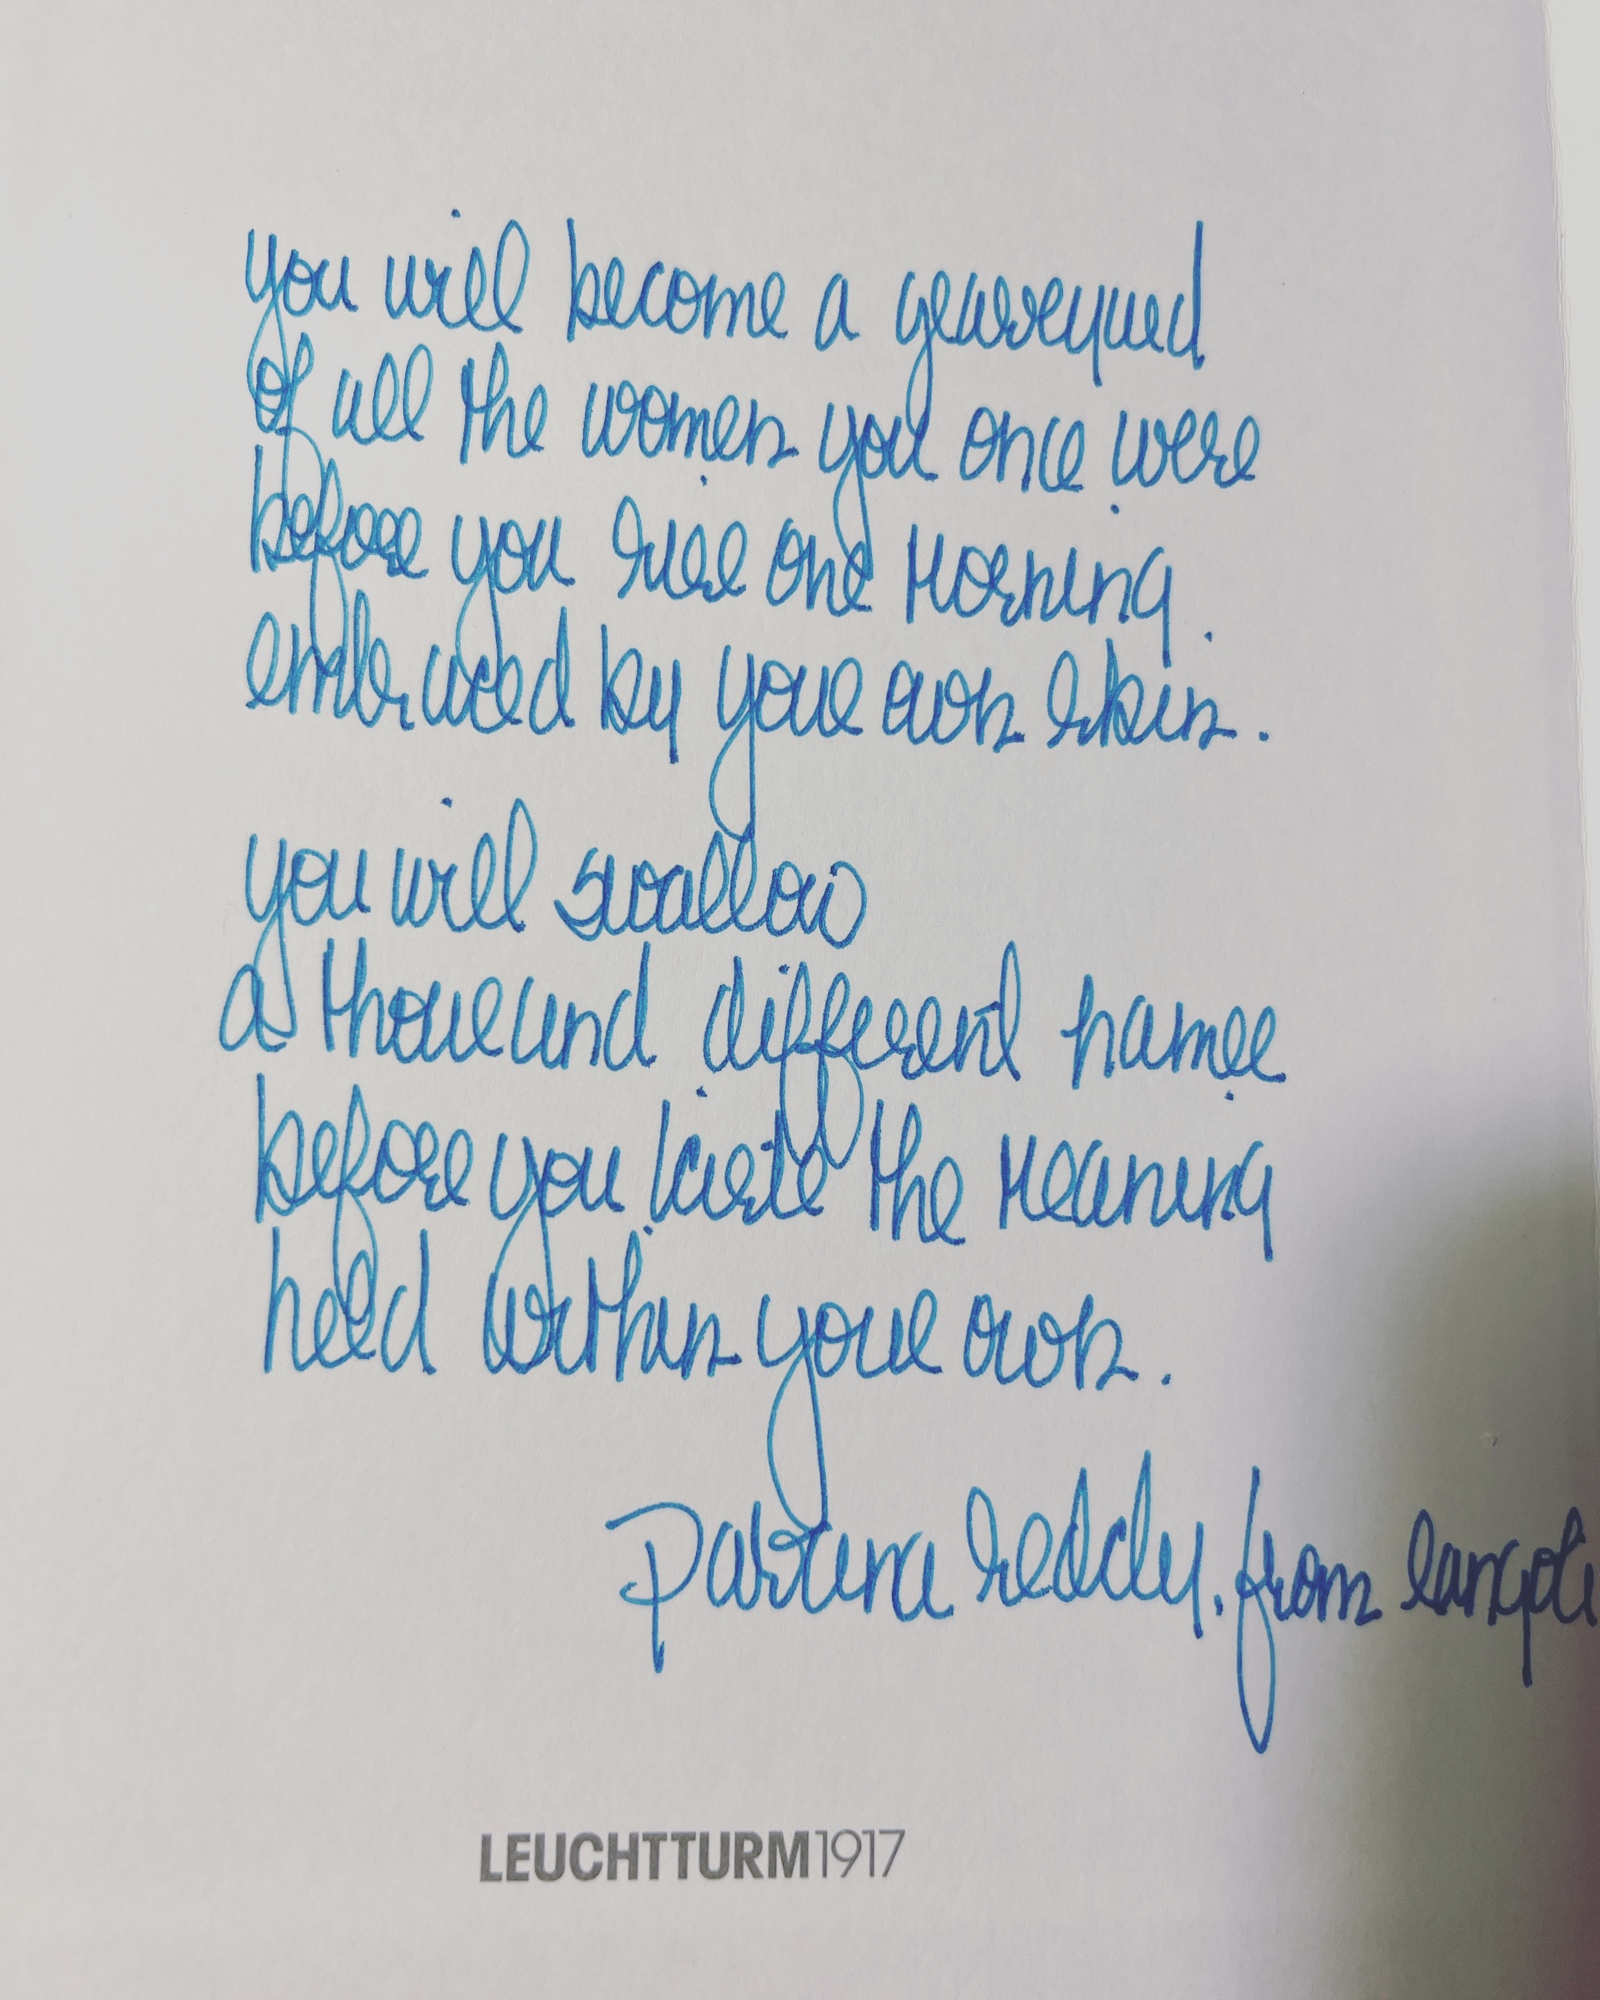 you will become a graveyard
of all the women you once were
before you rise one morning
embraced by your own skin.
you will swallow
a thousand different names
before you taste the meaning
held within your own.
Pavana reddy. from rangoli
LEUCHTTURM1917